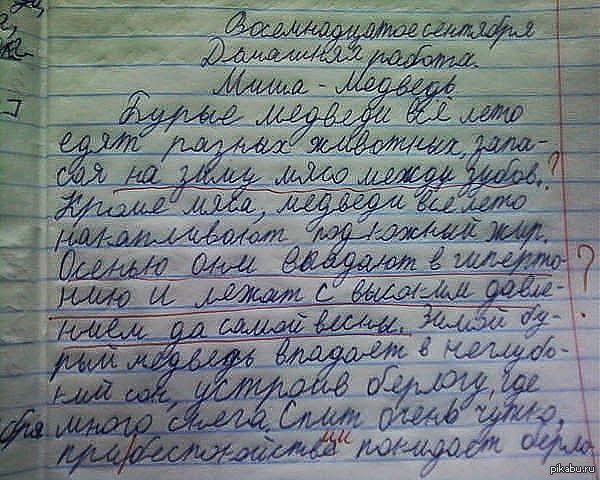 Восемнадцатое сентября
Домашняя работа.
Миша - Медведь
Бурые медведи всё лето
едят разных животных, запа-
сая на зиму мясо между зубов. ?
Кроме мяса, медведи всё лето
накапливают подкожный жир.
Осенью они впадают в гиперто- ?
нию и лежат с высоким давле-
нием да самой весны. Зимой бу-
рый медведь впадает в неглубо-
кий сон, устроив берлогу, где
много снега. Спит очень чутко,
при беспокойстве покидает берло-
pikabu.ru